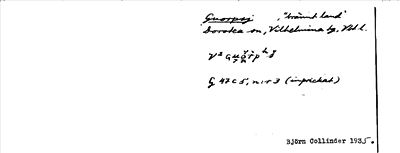 Guorpoj, "bränt land"
Dorotea sn, Vilhelmina tg, Vbt l.
G 47 c 5, n:r 3 (inprickat)
Björn Collinder 1935.